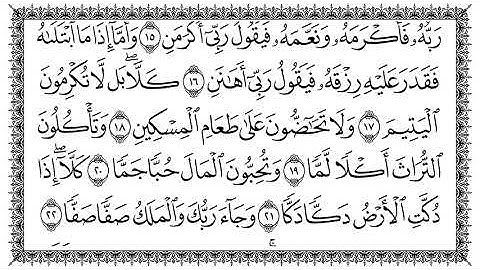 رَبُّهُۥ فَأَكْرَمَهُۥ وَنَعَّمَهُۥ فَيَقُولُ رَبِّىٓ أَكْرَمَنِ ١٥ وَأَمَّآ إِذَا مَا ٱبْتَلَىٰهُ
فَقَدَرَ عَلَيْهِ رِزْقَهُۥ فَيَقُولُ رَبِّىٓ أَهَٰنَنِ ١٦ كَلَّا ۖ بَل لَّا تُكْرِمُونَ
ٱلْيَتِيمَ ١٧ وَلَا تَحَٰٓضُّونَ عَلَىٰ طَعَامِ ٱلْمِسْكِينِ ١٨ وَتَأْكُلُونَ
ٱلتُّرَاثَ أَكْلًا لَّمًّا ١٩ وَتُحِبُّونَ ٱلْمَالَ حُبًّا جَمًّا ٢٠ كَلَّآ ۖ إِذَا
دُكَّتِ ٱلْأَرْضُ دَكًّا دَكًّا ٢١ وَجَآءَ رَبُّكَ وَٱلْمَلَكُ صَفًّا صَفًّا ٢٢